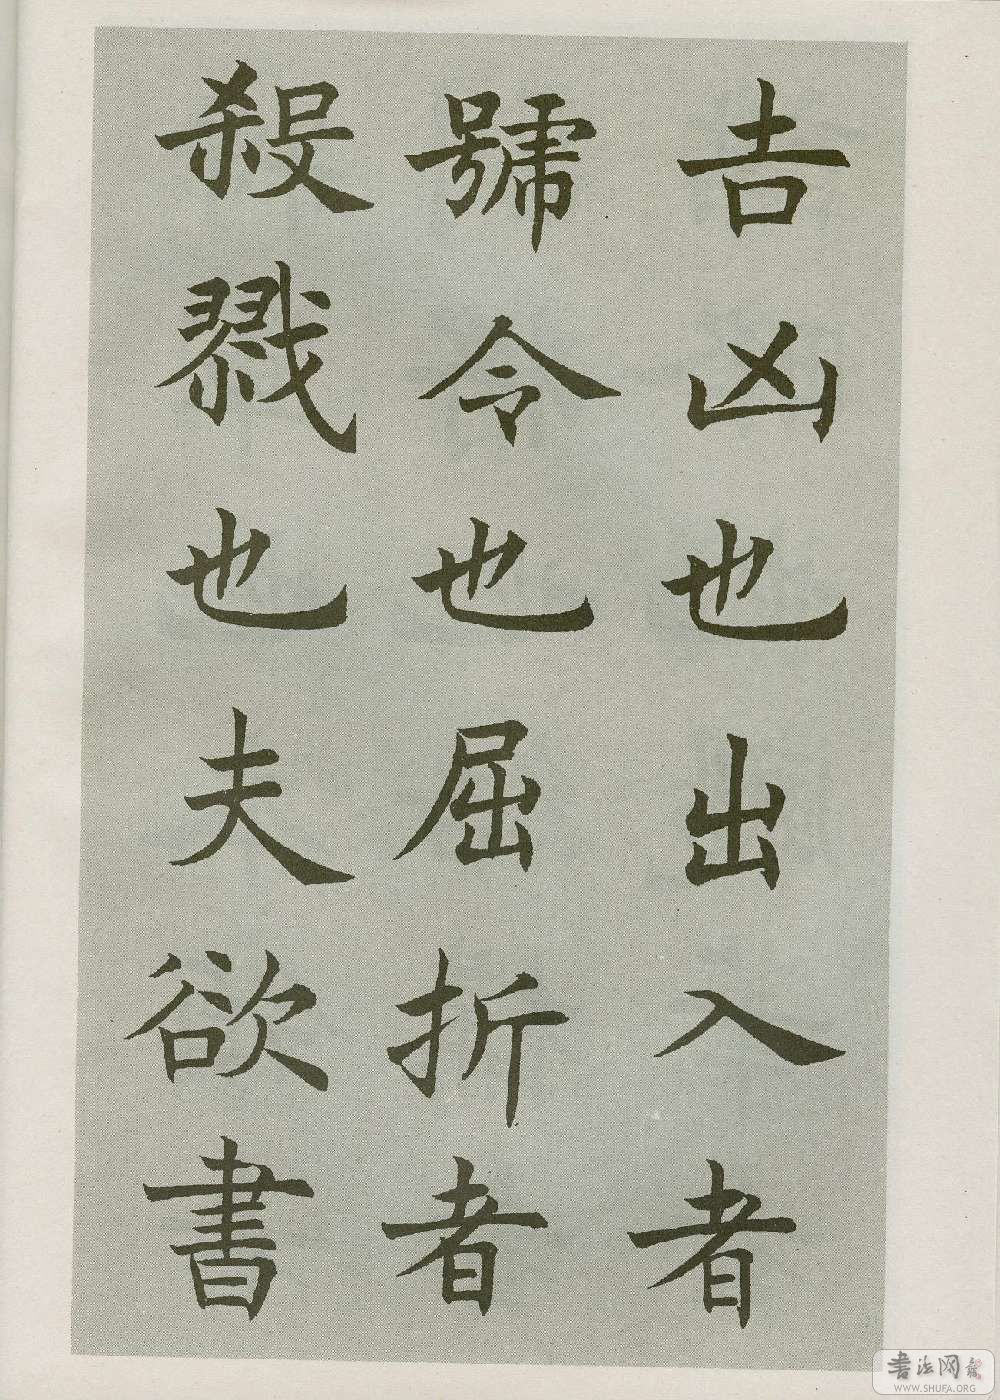 吉凶也出入者
號令也屈折者
殺戮也夫欲書
書法网
WWW.SHUFA.ORG